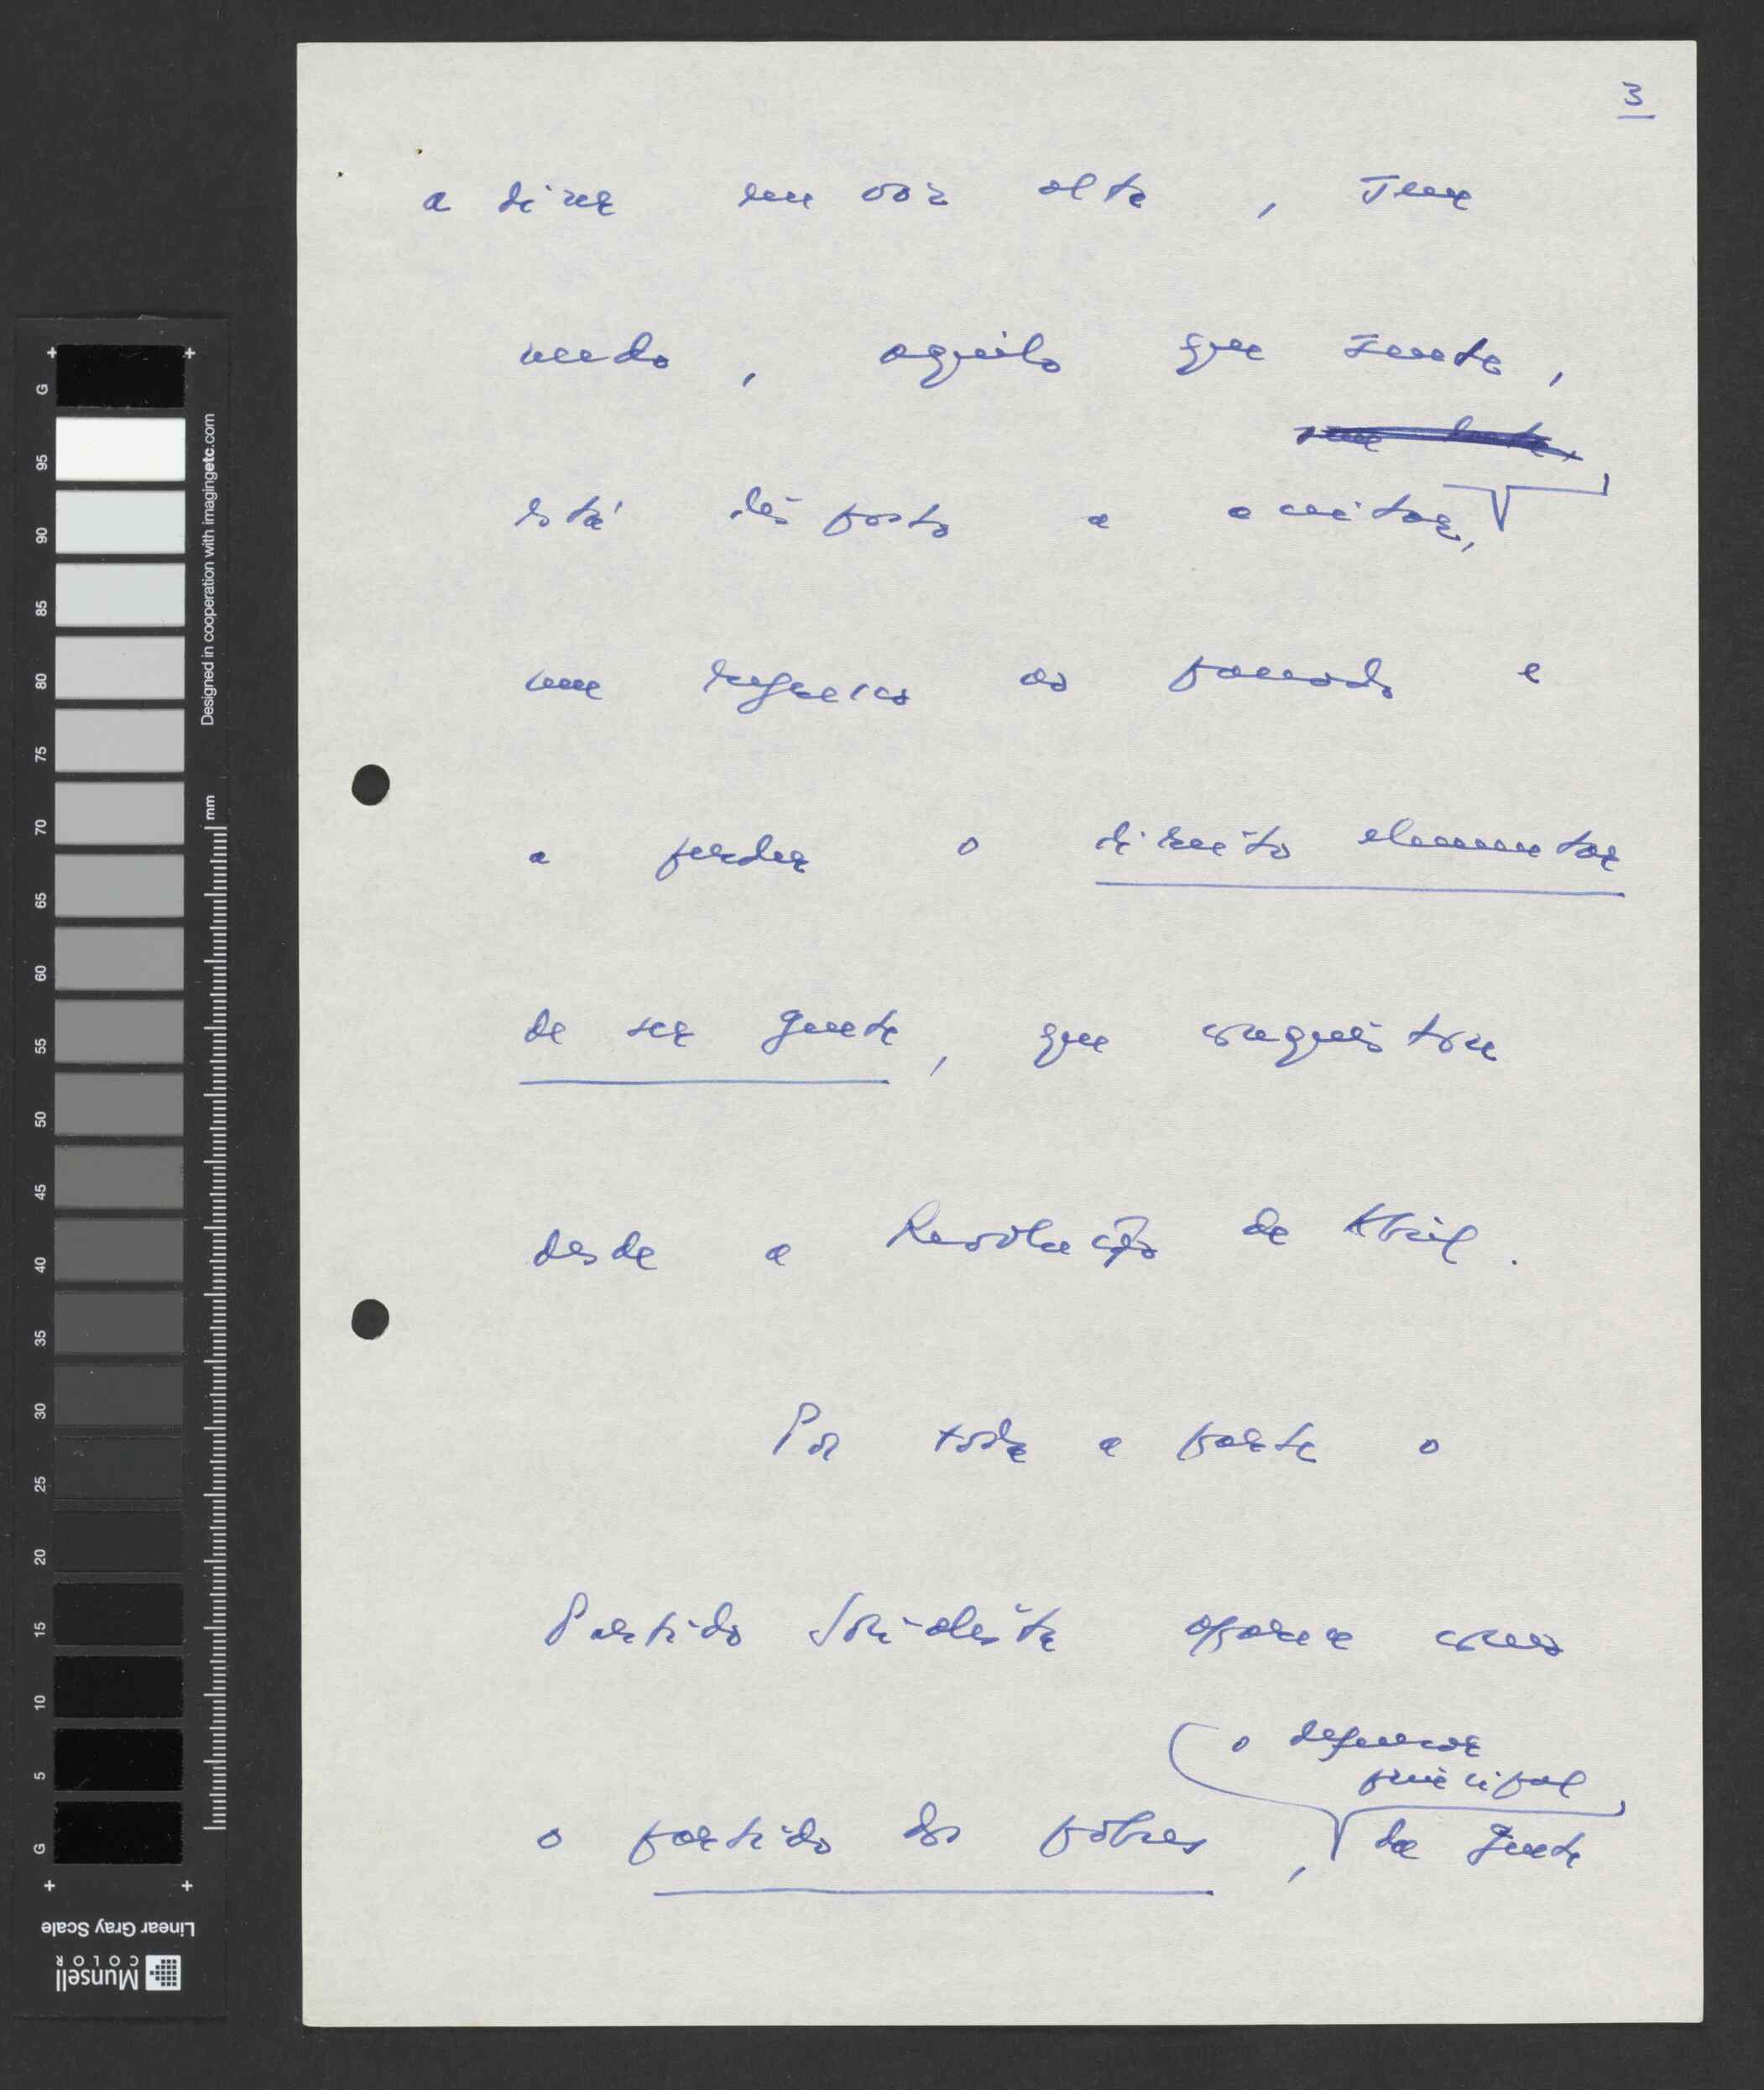 3
a dizer em voz alta, sem
medo, aquilo que sente,
sem luta,
está disposto a aceitar,
um regresso ao passado e
a perder o direito elementar
de ser gente, que conquistou
desde a Revolução de Abril.
Por toda a parte o
Partido Socialista aparece como
o defensor
principal
o partido dos pobres, da gente
G 95 90 85 80 75 70 65 60 55 50 45 40 35 30 25 20 15 10 5 G
mm
Designed in cooperation with imagingetc.com
Linear Gray Scale
Munsell
COLOR